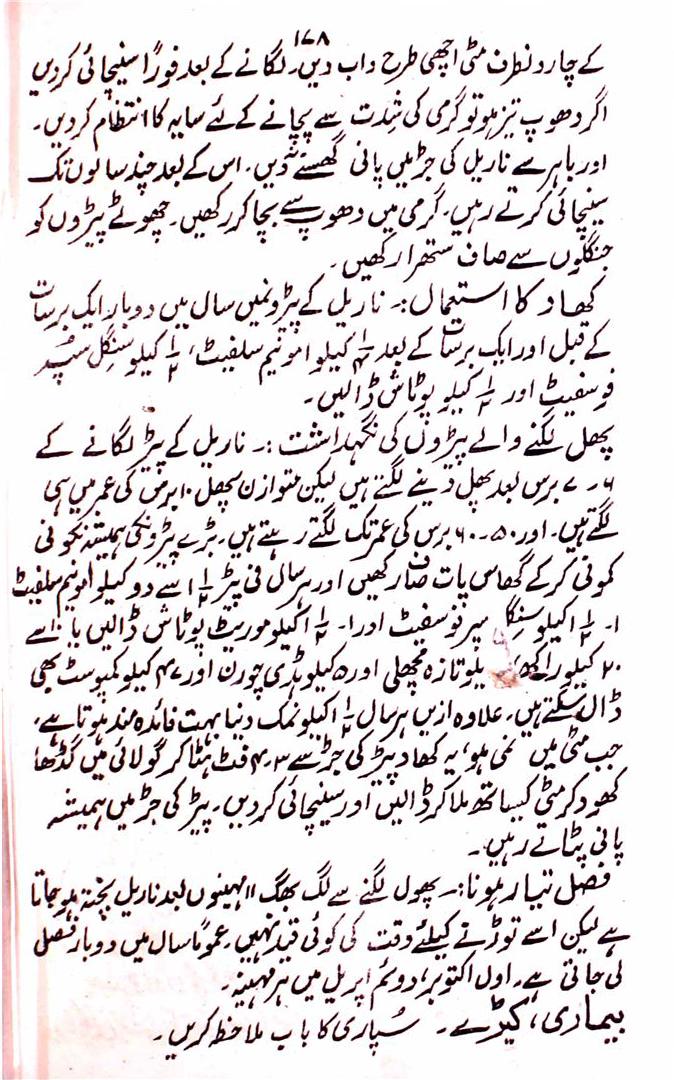 ۱۷۸
کے چاروں طرف مٹی اچھی طرح داب دیں۔ لگانے کے بعد فوراً سنیچائی کردیں
اگر دھوپ تیز ہو تو گرمی کی شدت سے بچانے کے لئے سایہ کا انتظام کردیں۔
اور باہر سے ناریل کی جڑ میں پانی گھسنے نہ دیں۔ اس کے بعد چند سالوں تک
سینچائی کرتے رہیں۔ گرمی میں دھوپ سے بچا کر رکھیں۔ چھوٹے پیڑوں کو
جنگلوں سے صاف ستھرا رکھیں۔
کھاد کا استعمال:۔ ناریل کے پیڑونمیں سال میں دو بار ایک برسات
کے قبل اور ایک برسات کے بعد ۱/۴ کیلو امونیم سلفیٹ، ۱/۲ کیلو سنگل سپر
فوسفیٹ اور ۱/۲ کیلو پوٹاش ڈالیں۔
پھل لگنے والے پیڑوں کی نگہداشت :۔ ناریل کے پیڑ لگانے کے
۶۔ ۷ برس بعد پھل دینے لگتے ہیں لیکن متوازن پھل ۱۰ برس کی عمر میں ہی
لگتے ہیں۔ اور ۵۰۔۶۰ برس کی عمر تک لگتے رہتے ہیں۔ بڑے پیڑونکی ہمیشہ نکونی
کمونی کرکے گھاس پات صاف رکھیں اور ہر سال فی پیڑ ۱ ۱/۲ سے دو کیلو امونیم سلفیٹ
۱۔ ۱ ۱/۲ کیلو سنگل سپر فوسفیٹ اور ۱۔ ۱ ۱/۲ کیلو موریٹ پوٹاش ڈالیں یا ۱۰ سے
۲۰ کیلو راکھ، کیلو تازہ مچھلی اور ۵ کیلو ہڈی چورن اور ۴۷ کیلو کمپوسٹ بھی
ڈال سکتے ہیں۔ علاوہ ازیں ہر سال ۱ ۱/۲ کیلو نمک دنیا بہت فائدہ مند ہوتا ہے،
جب مٹی میں نمی ہو، یہ کھاد پیڑ کی جڑ سے ۳۔۴ فٹ ہٹا کر گولائی میں گڈھا
کھود کر مٹی کیساتھ ملا کر ڈالیں اور سینچائی کردیں۔ پیڑ کی جڑ میں ہمیشہ
پانی پٹاتے رہیں۔
فصل تیار ہونا:۔ پھول لگنے سے لگ بھگ ۱۱ مہینوں بعد ناریل پختہ ہو جاتا
ہے لیکن اسے توڑنے کیلئے وقت کی کوئی قید نہیں۔ عموماً سال میں دوبار فصل
لی جاتی ہے۔ اول اکتوبر، دوئم اپریل میں ہر مہینہ۔
بیماری، کیڑے۔ سُپاری کا باب ملاحظہ کریں۔